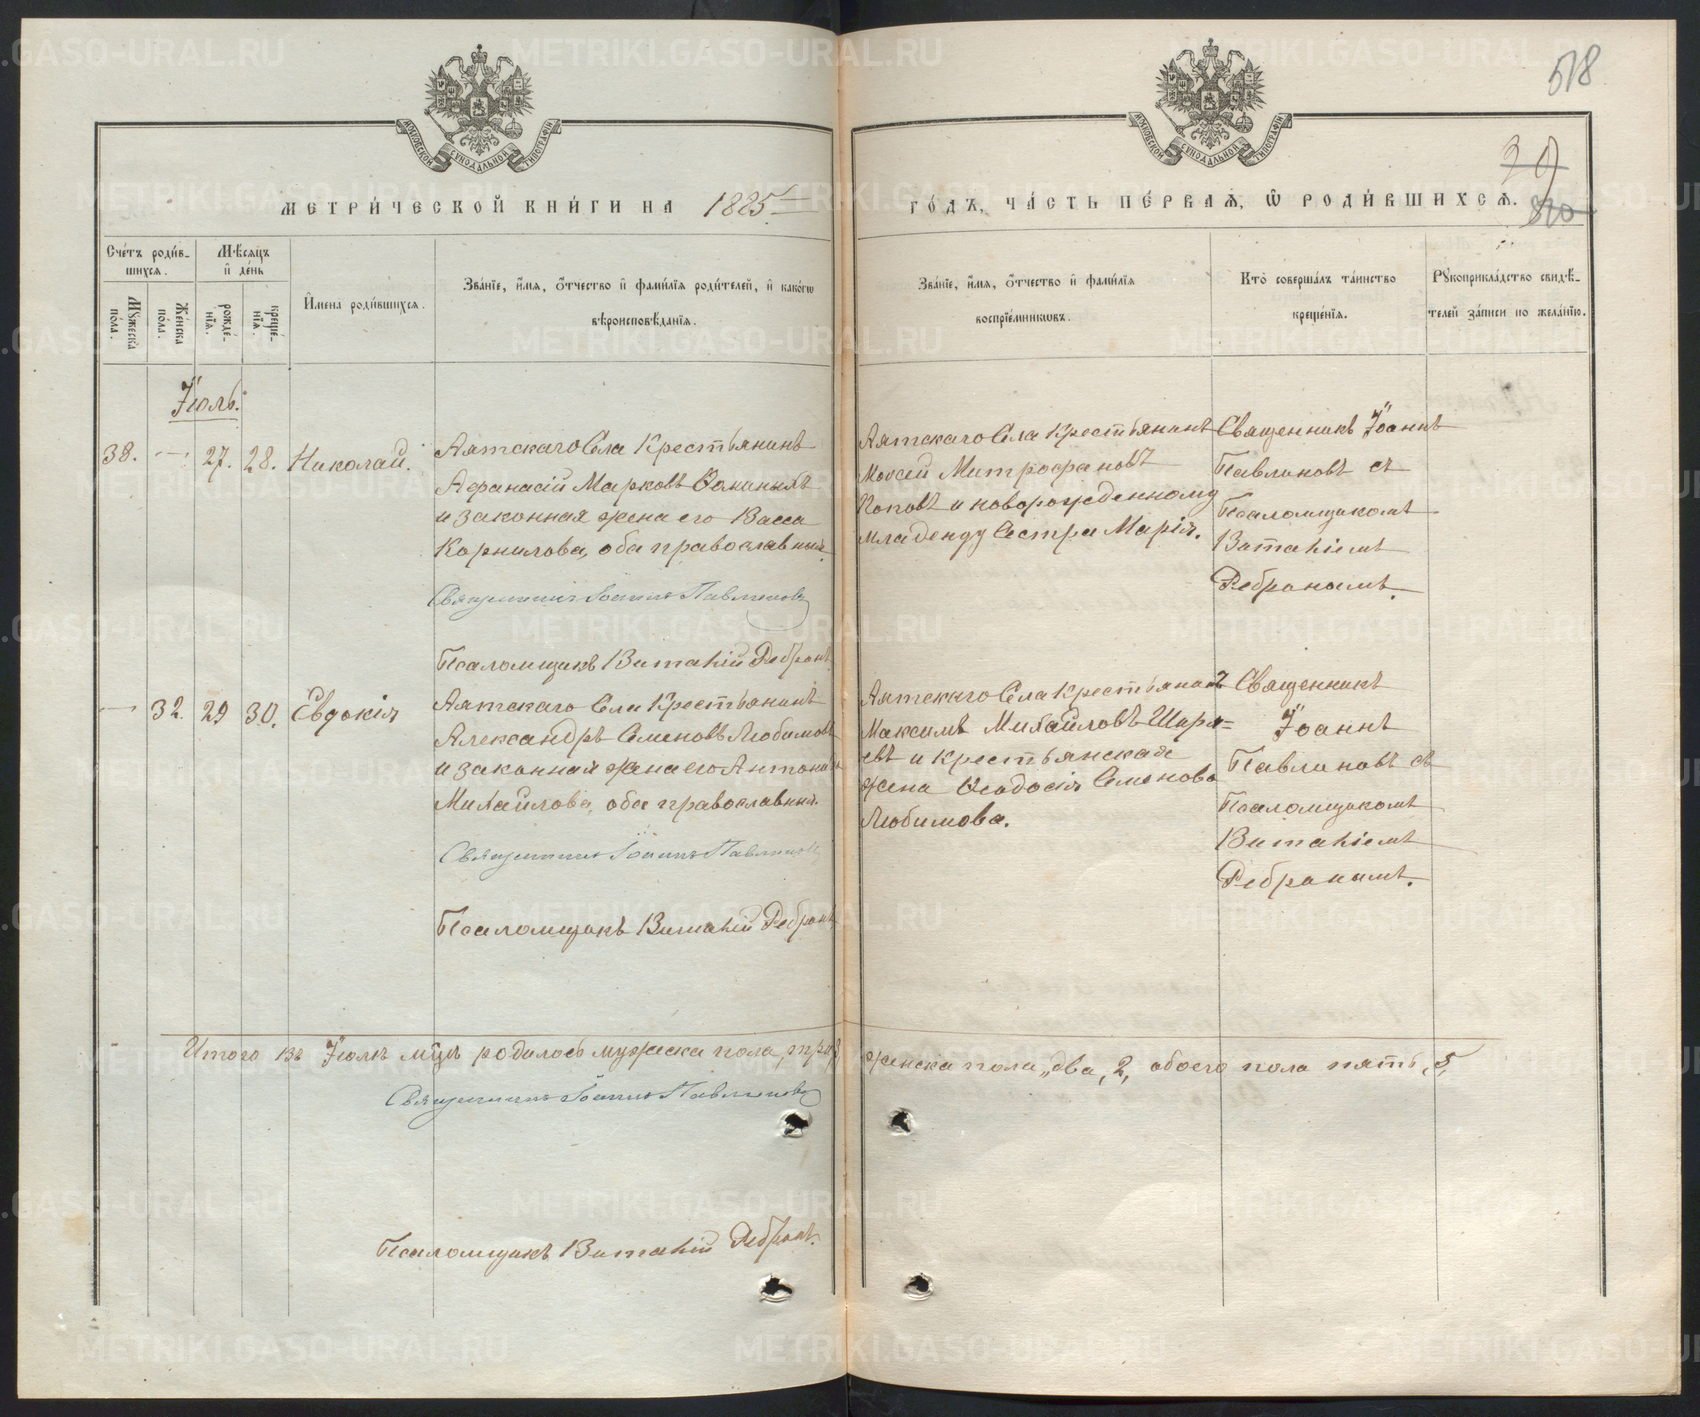 518
МОСКОВСКОЙ СУНОДАЛЬНОЙ ТИПОГРАФІИ
МОСКОВСКОЙ СУНОДАЛЬНОЙ ТИПОГРАФІИ
МЕТРИ́ЧЕСКОЙ КНИ́ГИ НА 1885
ГО́ДЪ, ЧА́СТЬ ПЕ́РВАѦ, Ѡ РОДИ́ВШИХСѦ.
Сче́тъ роди́в-
шихсѧ.
Мѣ́сѧцъ
и҆ де́нь
Мꙋ́жеска по́ла.
Же́нска пола.
рожде́-
нїѧ.
креще́-
нїѧ.
И҆мена роди́вшихсѧ.
Зва́нїе, и҆́мѧ, ѻ҆́тчество и҆ фами́лїѧ роди́телей, и҆ како́гѡ
вѣроисповѣ́данїѧ.
Зва́нїе, и҆́мѧ, ѻ҆́тчество и҆ фами́лїѧ
воспрїе́мникѡвъ.
Кто̀ соверша́лъ та́инство
креще́нїѧ.
Рꙋкоприкла́дство свидѣ́-
телей за́писи по жела́нїю.
Іюль.
38. — 27. 28. Николай.
Аятскаго Села Крестьянинъ
Афанасій Марковъ Ѳоминыхъ
и законная жена его Васса
Корнилова, оба православные.
Священникъ Іоаннъ Павлиновъ
Псаломщикъ Виталій Ребринъ
Аятскаго Села Крестьянинъ
Моисей Митрофановъ
Поповъ и новорожденному
младенцу Сестра Марія.
Священникъ Іоаннъ
Павлиновъ съ
Псаломщикомъ
Виталіемъ
— 32. 29 30. Евдокія
Аятскаго Села Крестьянинъ
Александръ Семеновъ Любимовъ
и законная жена его Антонина
Михайлова, оба православные.
Священникъ Іоаннъ Павлиновъ
Псаломщикъ Виталій
Аятскаго Села Крестьянинъ
Максимъ Михайловъ Шаря-
евъ и крестьянская
жена Ѳеодосія Семенова
Любимова.
Священникъ
Іоаннъ
Павлиновъ съ
Псаломщикомъ
Виталіемъ
Итого въ Іюлѣ мцѣ родилось мужеска пола, три,
женска пола „два, 2, обоего пола пять, 5,
Священникъ Іоаннъ Павлиновъ
Псаломщикъ Виталій
METRIKI.GASO-URAL.RU